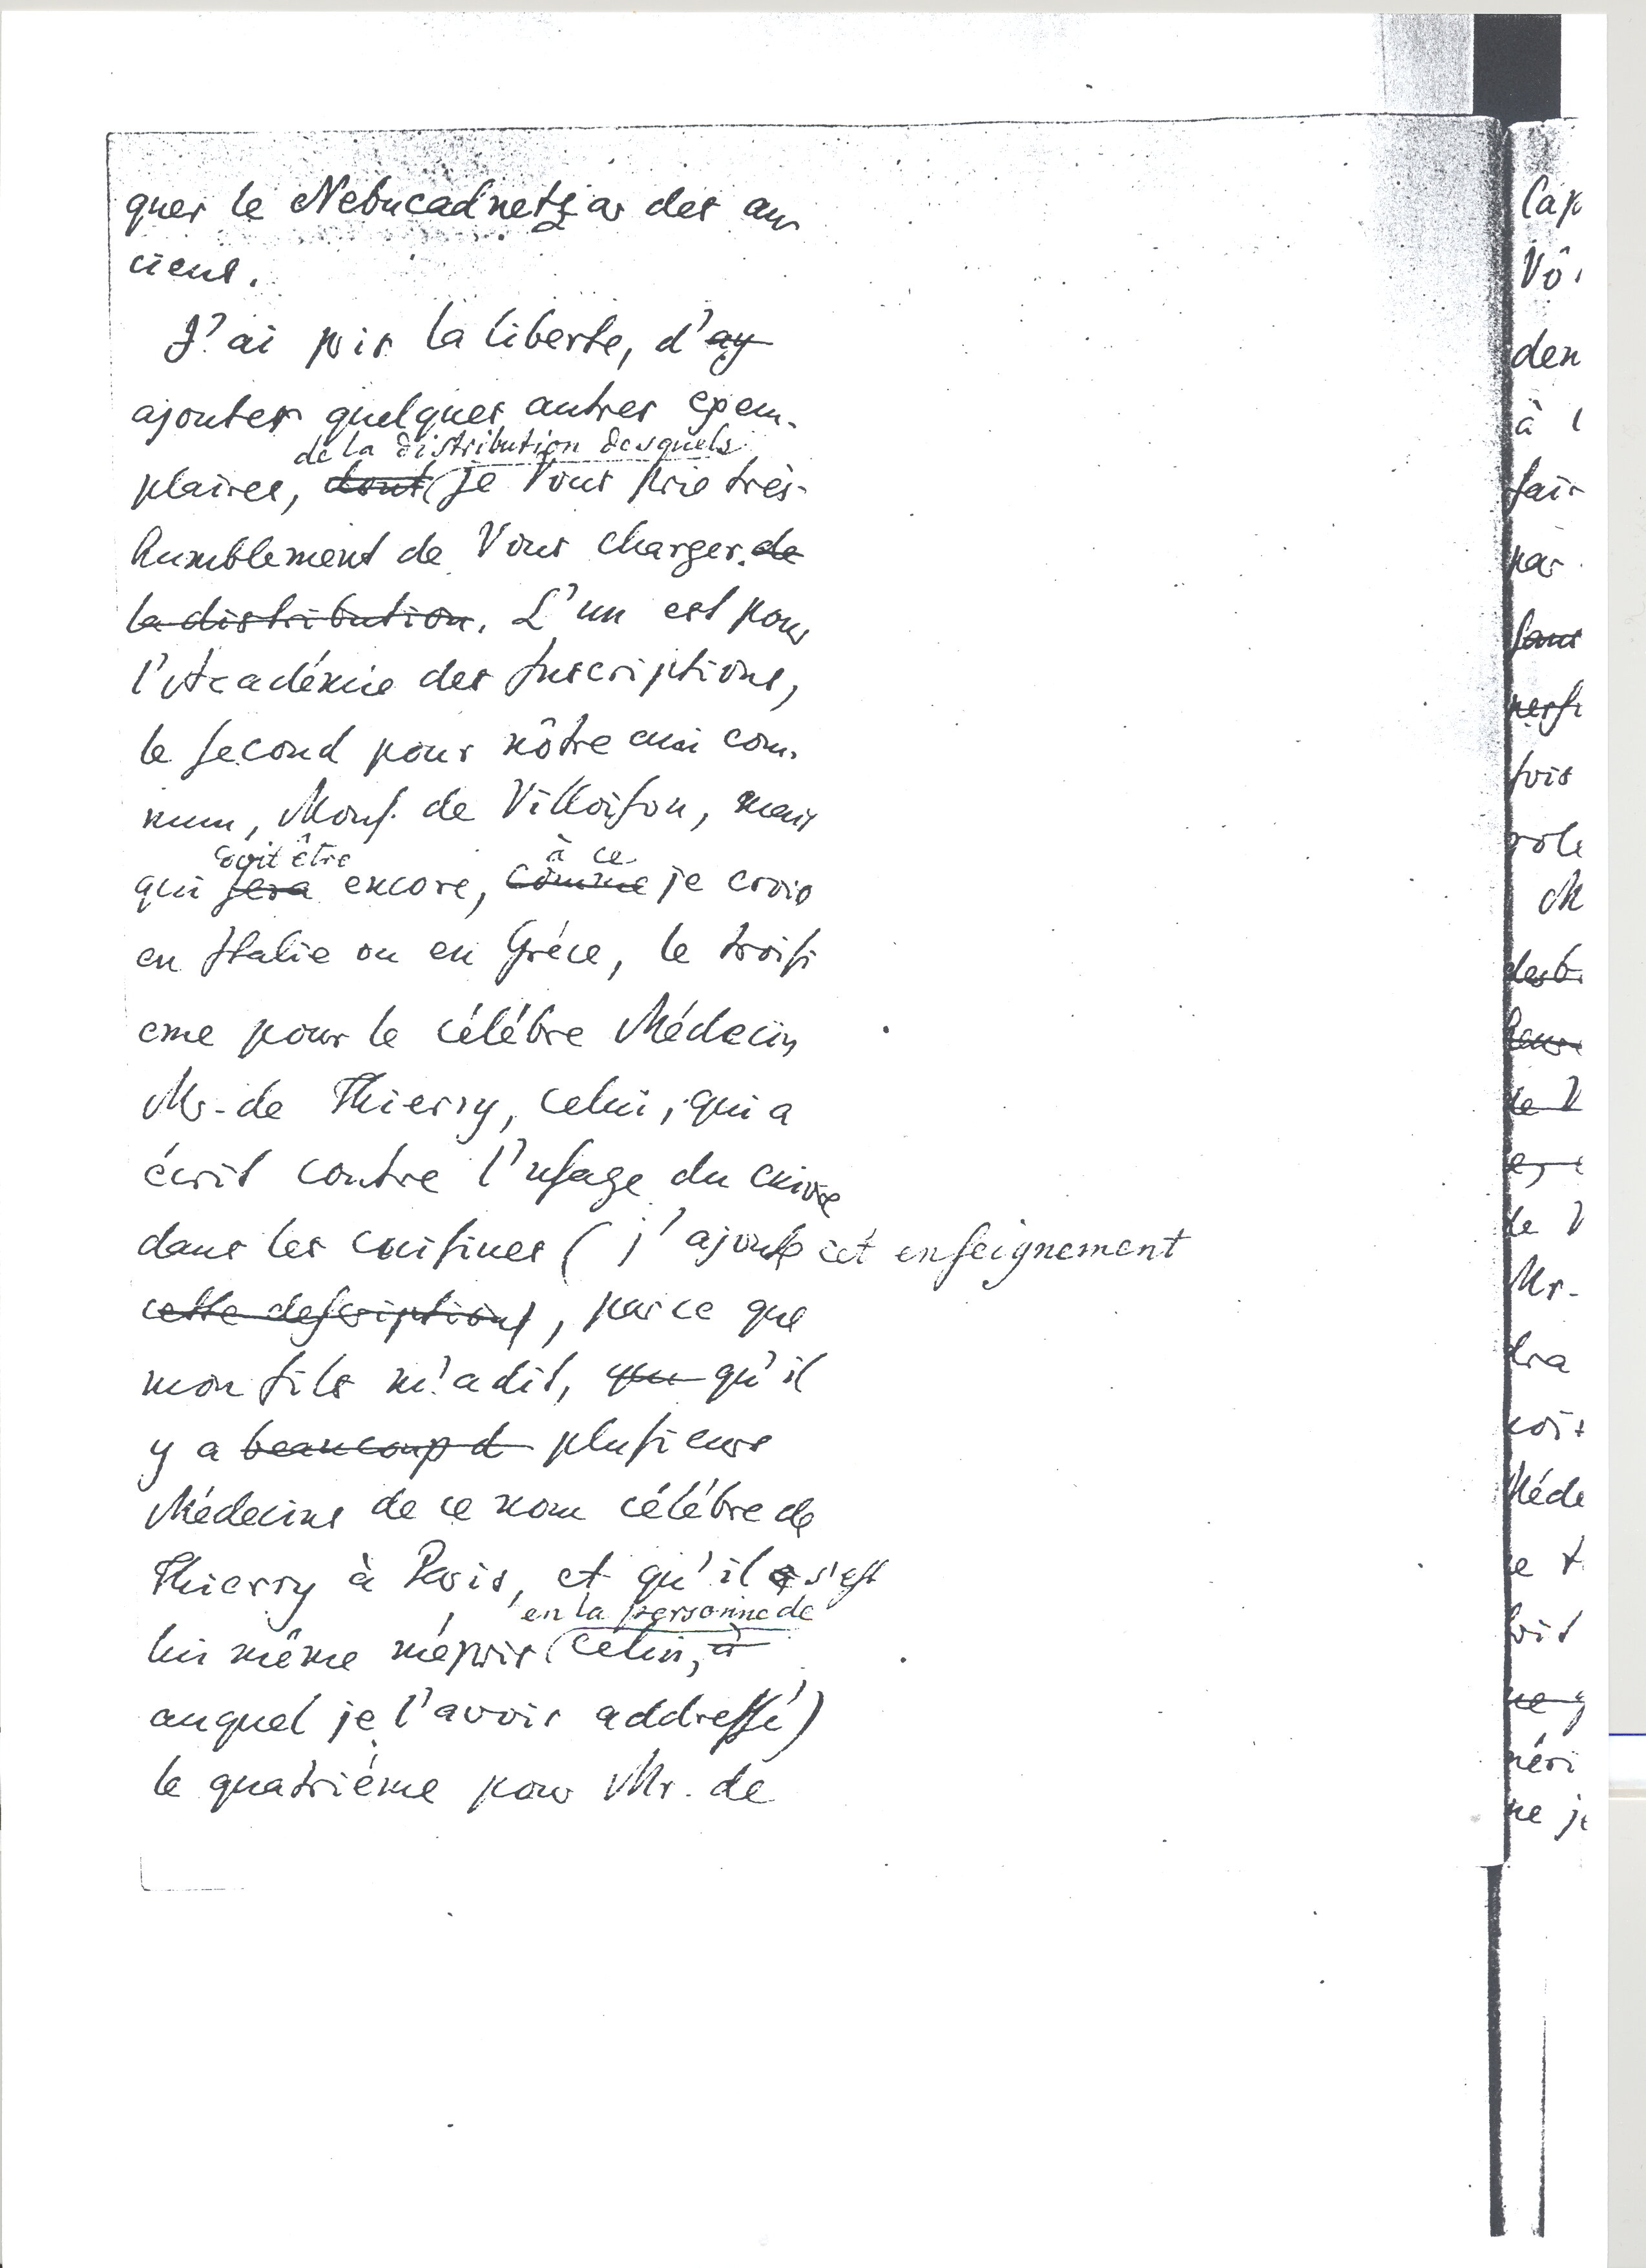 quer le Nebucadnetzar des an
ciens.
J'ai pris la liberte, d'ay
ajouter quelques autres exem-
de la distribution desquels
plaires, dont je Vous prie très-
humblement de Vous charger. de
la distribution. L'un est pour
l'Académie des Inscriptions,
le second pour nôtre ami com-
mun, Mons. de Villoison, mais
doit être à ce
qui sera encore, comme je crois
en Italie ou en Gréce, le troisi
eme pour le célébre Médecin
Mr. de Thierry, celui, qui a
écrit contre l'usage du cuivre
dans les cuisines (j'ajoute cet enseignement
cette description), parce que
mon fils m'a dit, que qu'il
y a beaucoup d plusieurs
Médecins de ce nom célébre de
Thierry à Paris, et qu'il s'est
en la personne de
lui même mépris (celui, à
auquel je l'avois addressé)
le quatriéme pour Mr. de
Cap
Vô
den
à l
fair
par
sans
fois
role
M
de V
de V
Mr.
dra
noi
Méde
soit
ne
néri
ne je